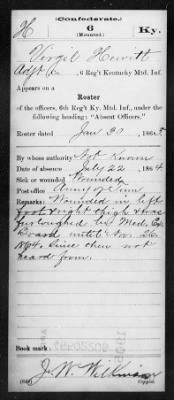 (Confederate.)
H 6 Ky.
(Mounted.)
Virgil Hewitt
Adjt, 6 Reg't Kentucky Mtd. Inf.,
Appears on a
Roster
of the officers, 6th Reg't Ky. Mtd. Inf., under the
following heading: "Absent Officers."
Roster dated Jan 30, 1865
By whose authority Not Known
Date of absence July 22, 1864
Sick or wounded Wounded
Post office Army of Tenn
Remarks: Wounded in left
foot & right thigh & was
furloughed by Med. Ex
Board until Nov. 26
1864. Since then not
heard from.
Book mark:
J. W. Wilkinson
Copyist.